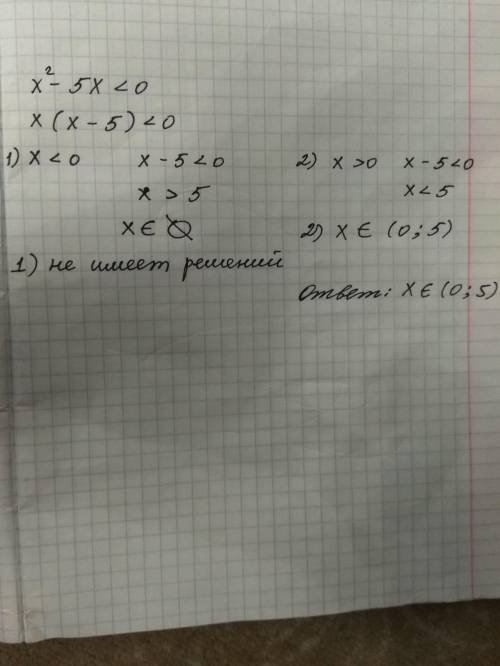 x² - 5x < 0
x (x - 5) < 0
1) x < 0 x - 5 < 0
x > 5
x ∈ ∅
1) не имеет решений
2) x > 0 x - 5 < 0
x < 5
2) x ∈ (0; 5)
Ответ: x ∈ (0; 5)